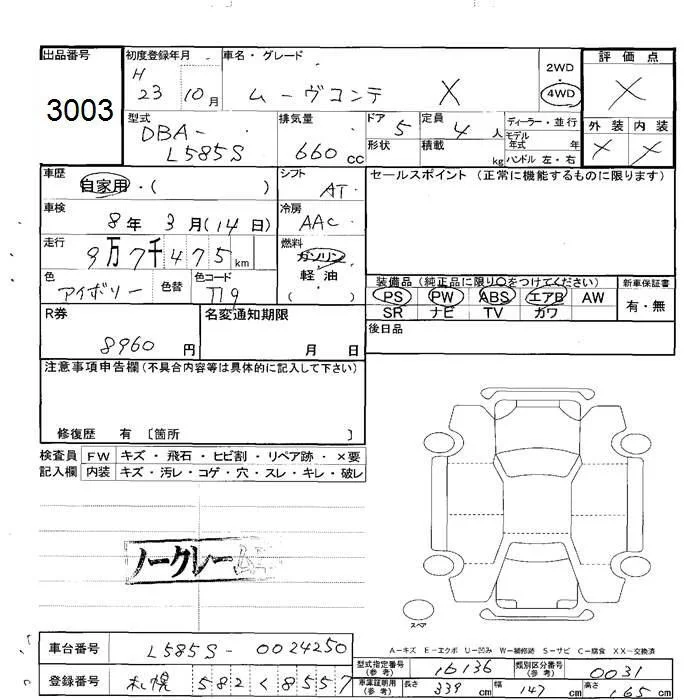 出品番号
3003
初度登録年月
H
23 10月
車名・グレード
ムーヴコンテ X
2WD
・
4WD
評価点
X
外装 内装
X X
型式
DBA-
L585S
排気量
660 cc
ドア 5
形状
定員 4 人
積載 kg
ディーラー・並行
モデル
年式 年
ハンドル 左・右
車歴
自家用・( )
シフト
AT
セールスポイント (正常に機能するものに限ります)
車検
8年 3月(14日)
冷房
AAC
走行
9万7千475km
燃料
ガソリン
軽油
( )
色
アイボリー
色替
色コード
T19
装備品(純正品に限り○をつけてください)
PS PW ABS エアB AW
SR ナビ TV カワ
新車保証書
有・無
R券
8960 円
名変通知期限
月 日
後日品
注意事項申告欄(不具合内容等は具体的に記入して下さい)
修復歴 有 〔箇所 〕
検査員 FW キズ・飛石・ヒビ割・リペア跡・×要
記入欄 内装 キズ・汚レ・コゲ・穴・スレ・キレ・破レ
ノークレーム
スペア
A－キズ E－エクボ U－凹み W－補修跡 S－サビ C－腐食 XX－交換済
車台番号 L585S-0024250
登録番号 札幌 582 く 8557
型式指定番号
(参考)
16136
類別区分番号
(参考)
0031
車庫証明用
(参考)
長さ 339 cm 幅 147 cm 高さ 165 cm